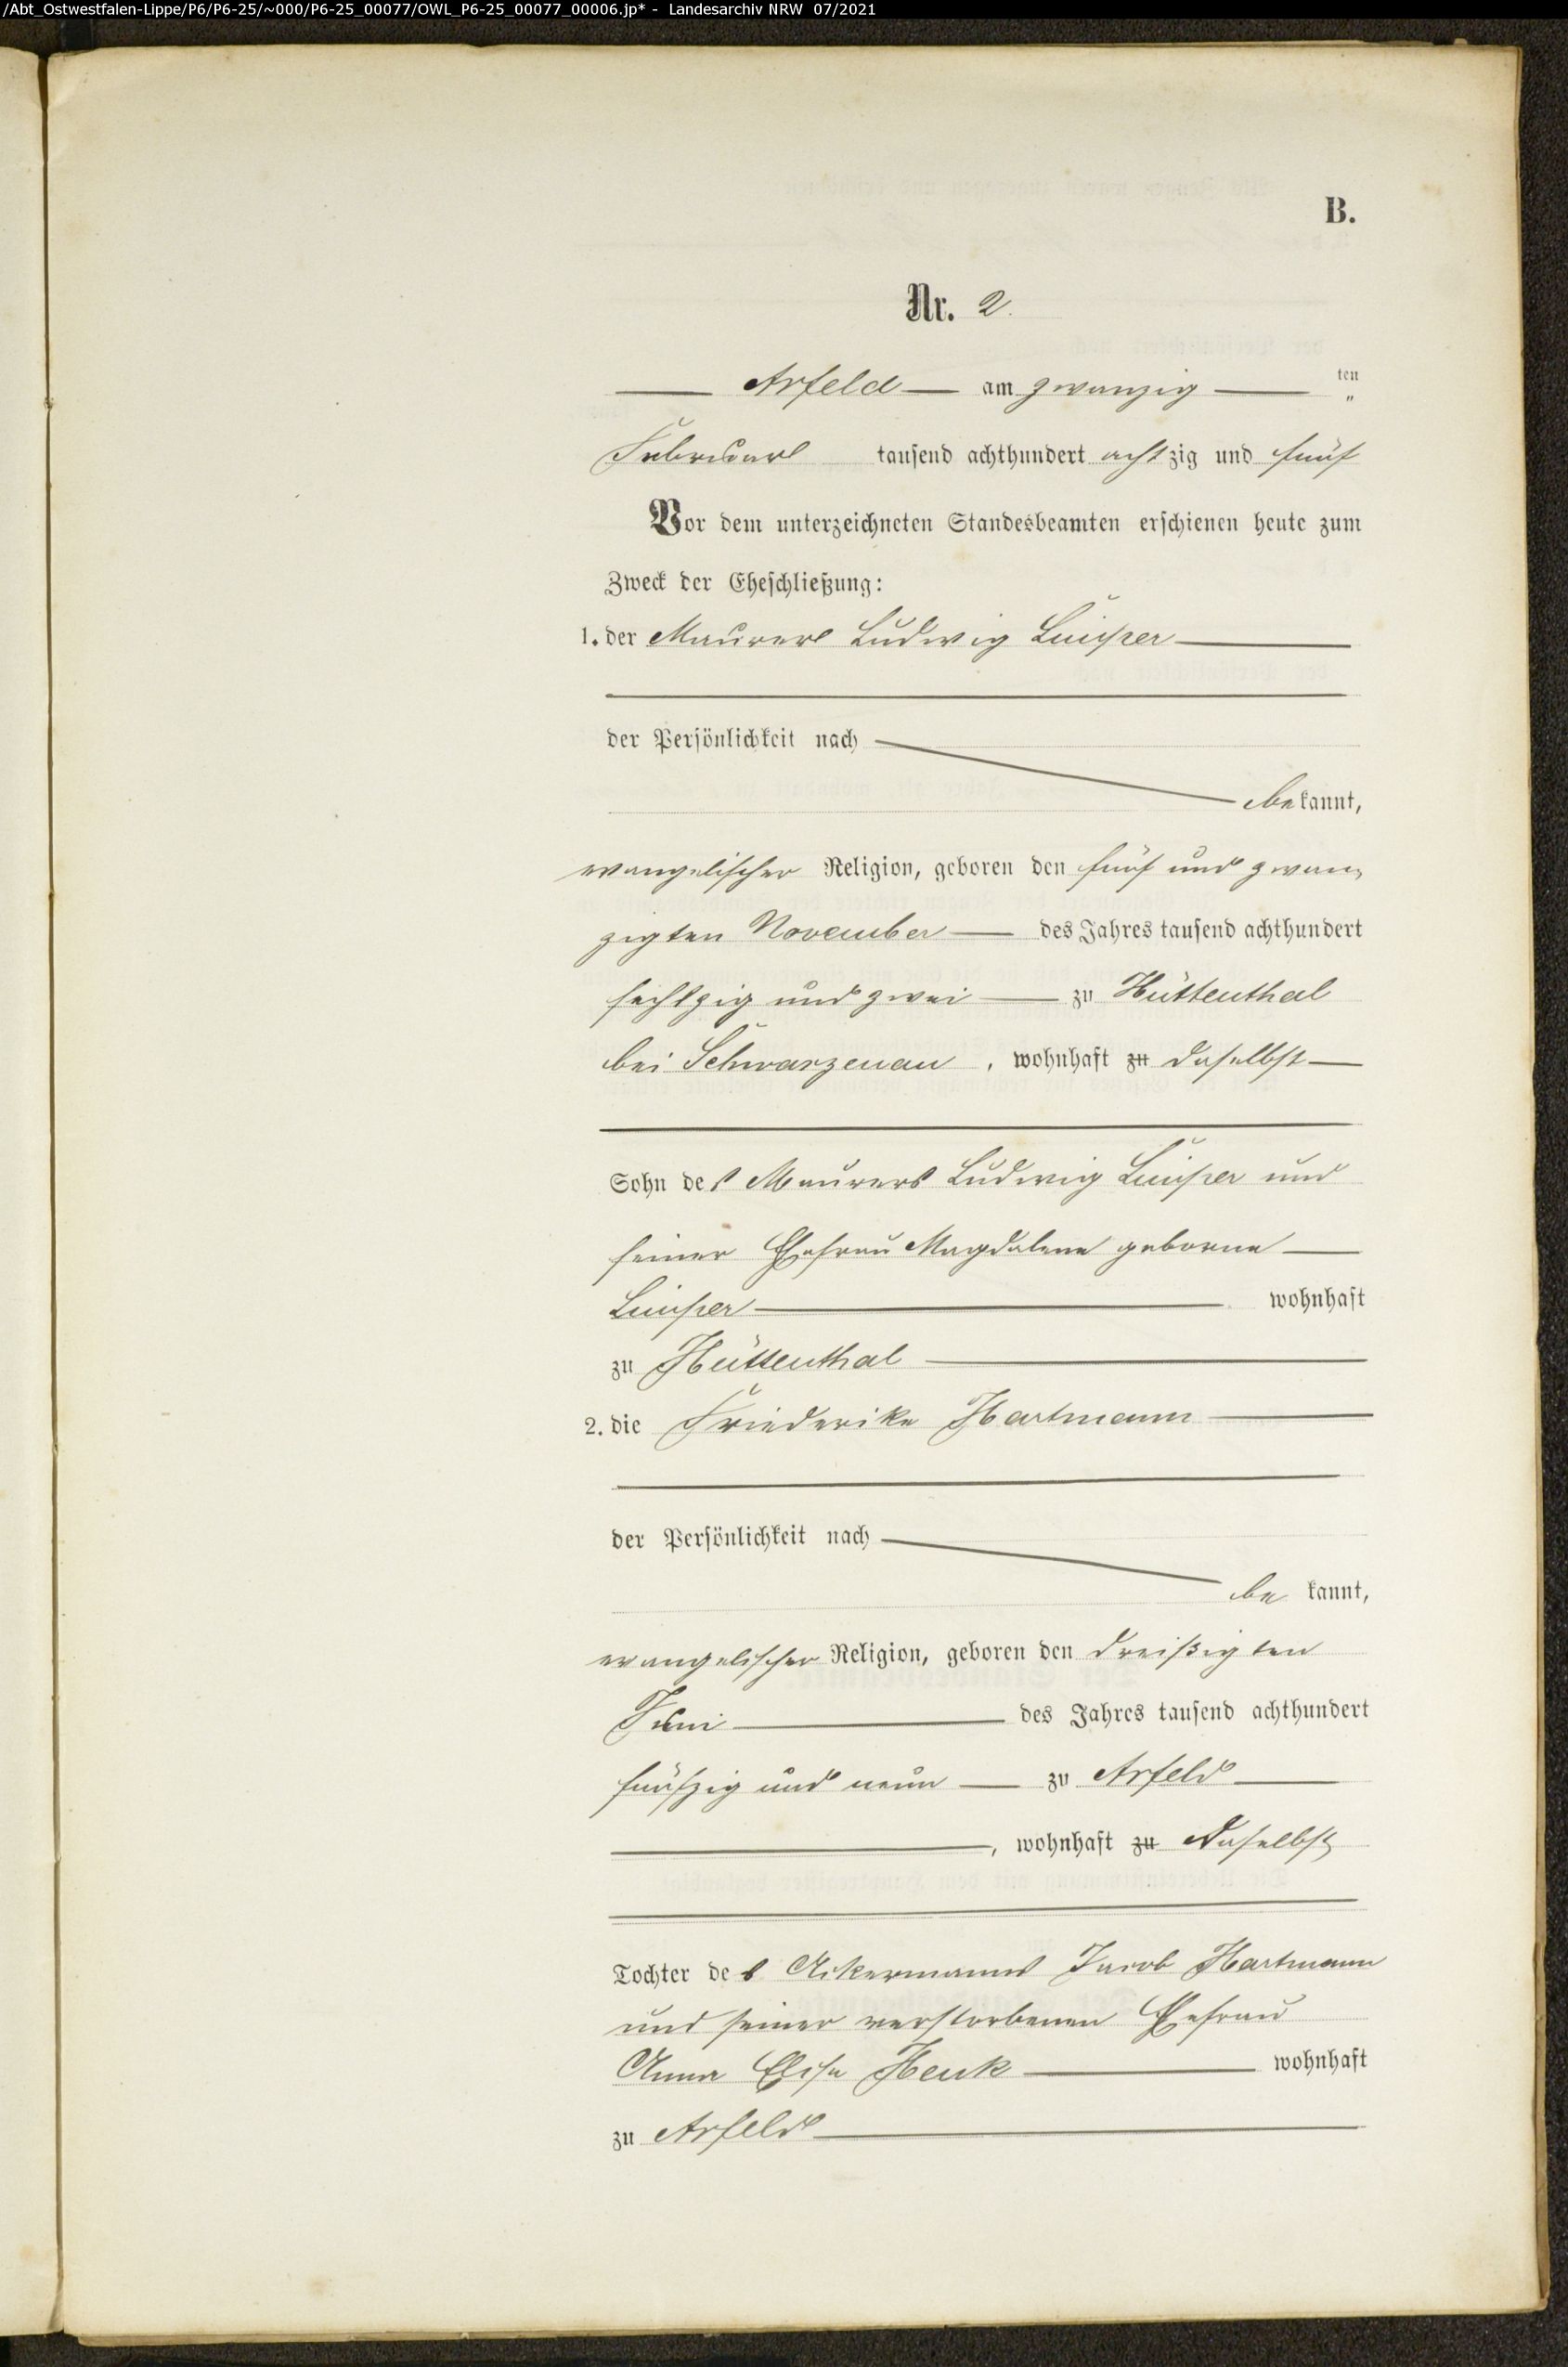 /Abt_Ostwestfalen-Lippe/P6/P6-25/~000/P6-25_00077/OWL_P6-25_00077_00006.jp* - Landesarchiv NRW 07/2021
B.
Nr. 2.
Arfeld am zwanzig ten "
Februar tausend achthundert achtzig und fünf
Vor dem unterzeichneten Standesbeamten erschienen heute zum
Zweck der Eheschließung:
1. der Maurer Ludwig
der Persönlichkeit nach
bekannt,
evangelischer Religion, geboren den fünf und zwan-
zigten November des Jahres tausend achthundert
sechszig und zwei zu Hüttenthal
bei Schwarzenau, wohnhaft zu daselbst
Sohn des Maurers Ludwig und
seiner Ehefrau Magdalene geborne
wohnhaft
zu Hüttenthal
2. die Friederike Hartmann
der Persönlichkeit nach
bekannt,
evangelischer Religion, geboren den dreißigten
Juni des Jahres tausend achthundert
fünfzig und neun zu Arfeld
, wohnhaft zu daselbst
Tochter des Ackermanns Jacob Hartmann
und seiner verstorbenen Ehefrau
Anna Elise Henk wohnhaft
zu Arfeld